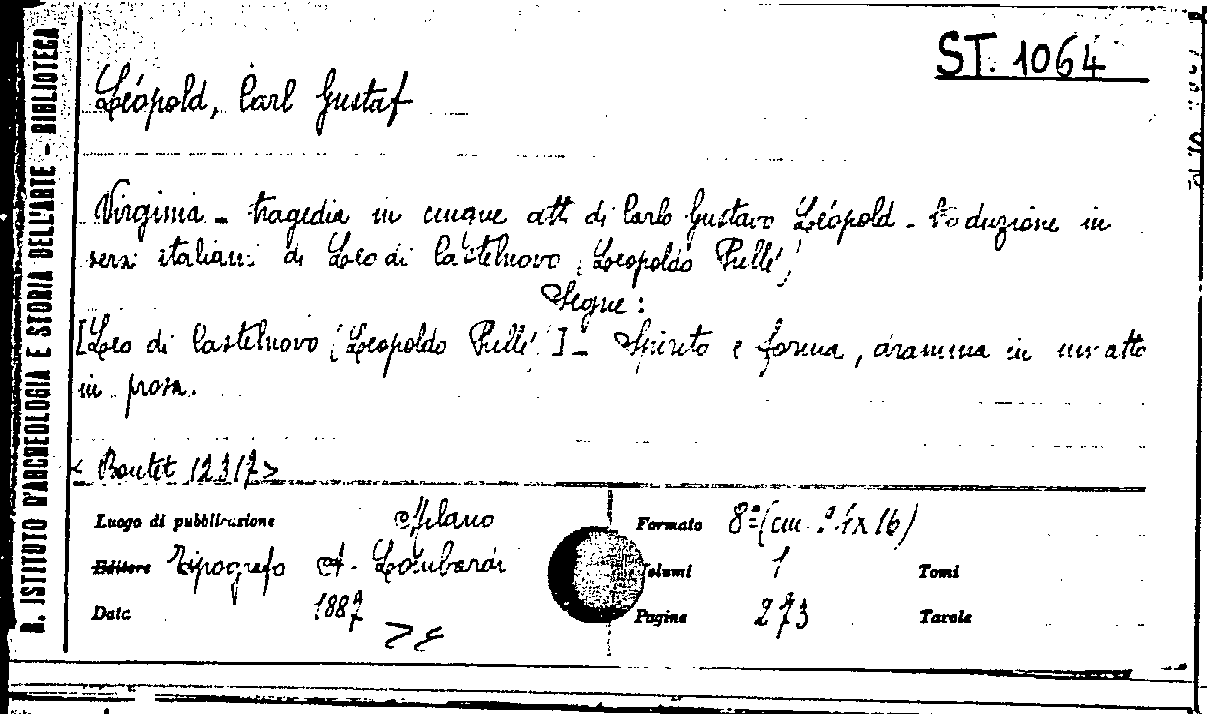 ST. 1064
Léopold, Carl Gustaf
Virginia - tragedia in cinque atti di Carlo Gustavo Léopold - Traduzione in
versi italiani di Leo di Castelnuovo (Leopoldo Pullé)
Segue:
[Leo di Castelnuovo (Leopoldo Pullé)] - Spirito e forma, dramma in un atto
in prosa.
< Boutet 12317>
Luogo di pubblicazione Milano
Formato 8º (cm. 24x16)
Editore Tipografo A. Lombardi
Volumi 1 Tomi
Data 1887
Pagine 273 Tavole
R. ISTITUTO D'ARCHEOLOGIA E STORIA DELL'ARTE - BIBLIOTECA